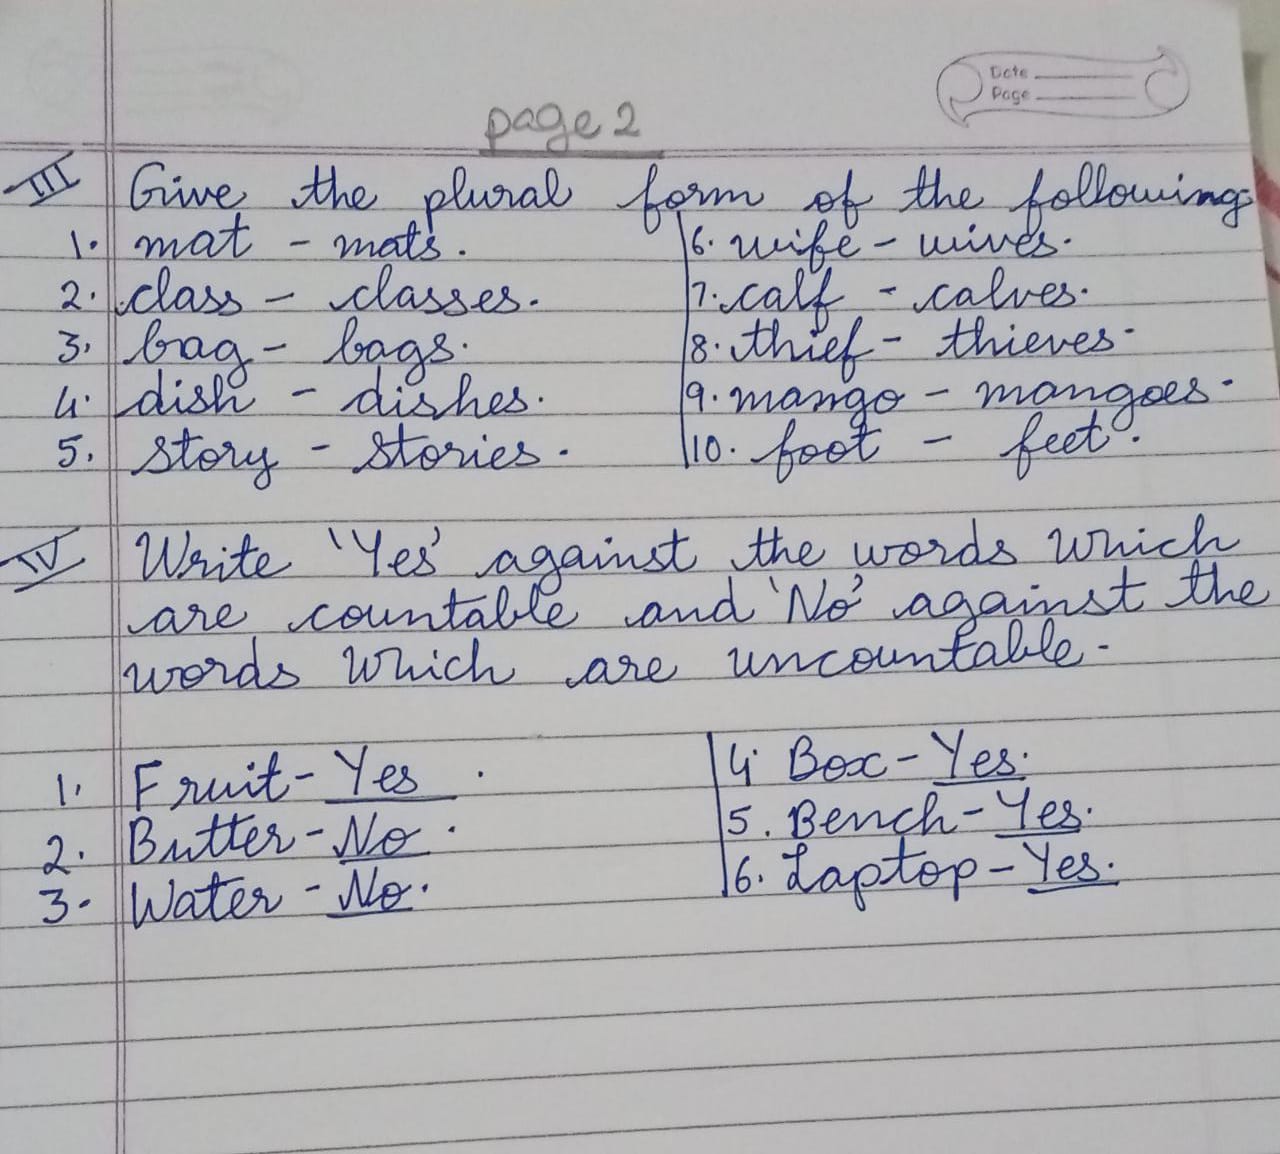 Date
Page
page 2
III Give the plural form of the following
1. mat - mats.
2. class - classes.
3. bag - bags.
4. dish - dishes.
5. story - stories.
6. wife - wives.
7. calf - calves.
8. thief - thieves.
9. mango - mangoes.
10. foot - feet.
IV Write 'Yes' against the words which
are countable and 'No' against the
words which are uncountable.
1. Fruit - Yes.
2. Butter - No.
3. Water - No.
4. Box - Yes.
5. Bench - Yes.
6. Laptop - Yes.